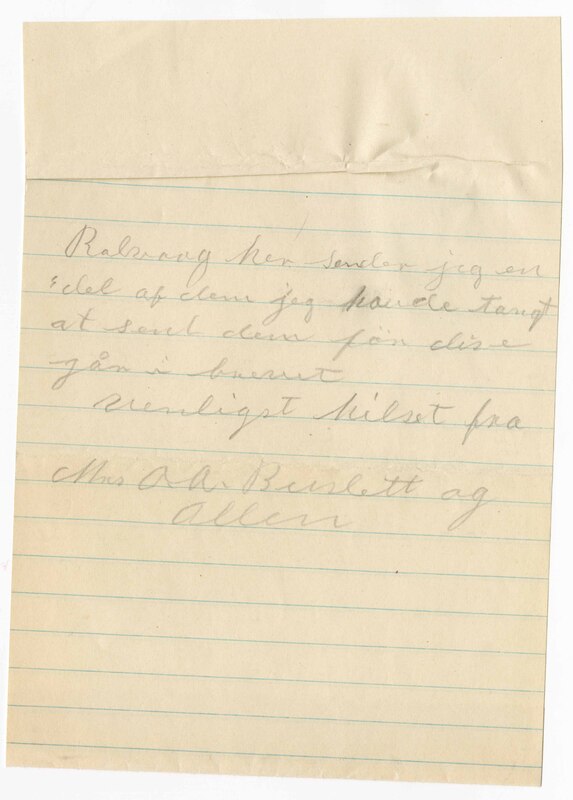 Rolvaag her sender jeg en
del af dem jeg havde tangt
at send dem før dise
går i brevet
venligst hilset fra
Mrs O. A. Buslett og
Allen